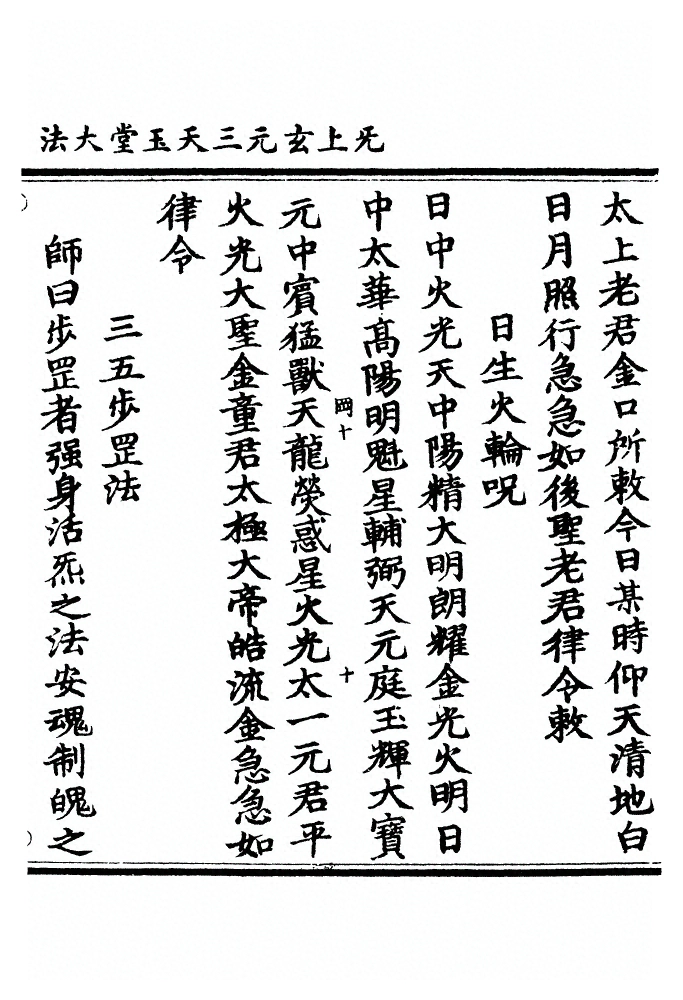 无上玄元三天玉堂大法
太上老君金口所敕今日某時仰天清地白
日月照行急急如後聖老君律令敕
日生火輪呪
日中火光天中陽精大明朗耀金光火明日
中太華高陽明魁星輔弼天元庭玉輝大寶
岡十
十
元中賓猛獸天龍熒惑星火光太一元君平
火光大聖金童君太極大帝皓流金急急如
律令
三五步罡法
師曰步罡者强身活炁之法安魂制魄之